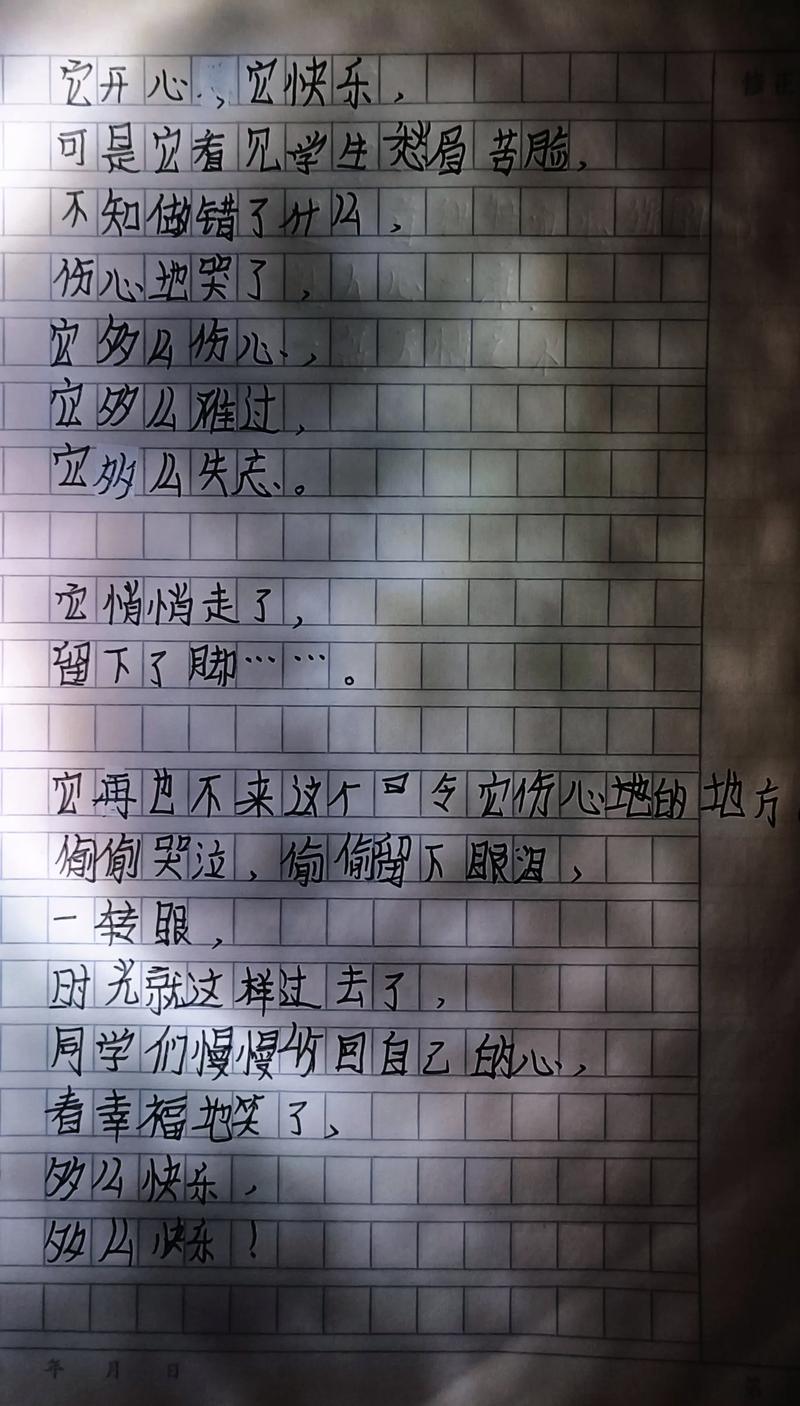 它开心,它快乐,
可是它看见学生愁眉苦脸,
不知做错了什么,
伤心地哭了,
它多么伤心,
它多么难过,
它多么失志。
它悄悄走了,
留下了脚……。
它再也不来这个 令它伤心地的地方
偷偷哭泣,偷偷留下眼泪,
一转眼,
时光就这样过去了,
同学们慢慢收回自己的心,
看幸福地笑了、
多么快乐,
多么快乐!
修正
年 月 日
第